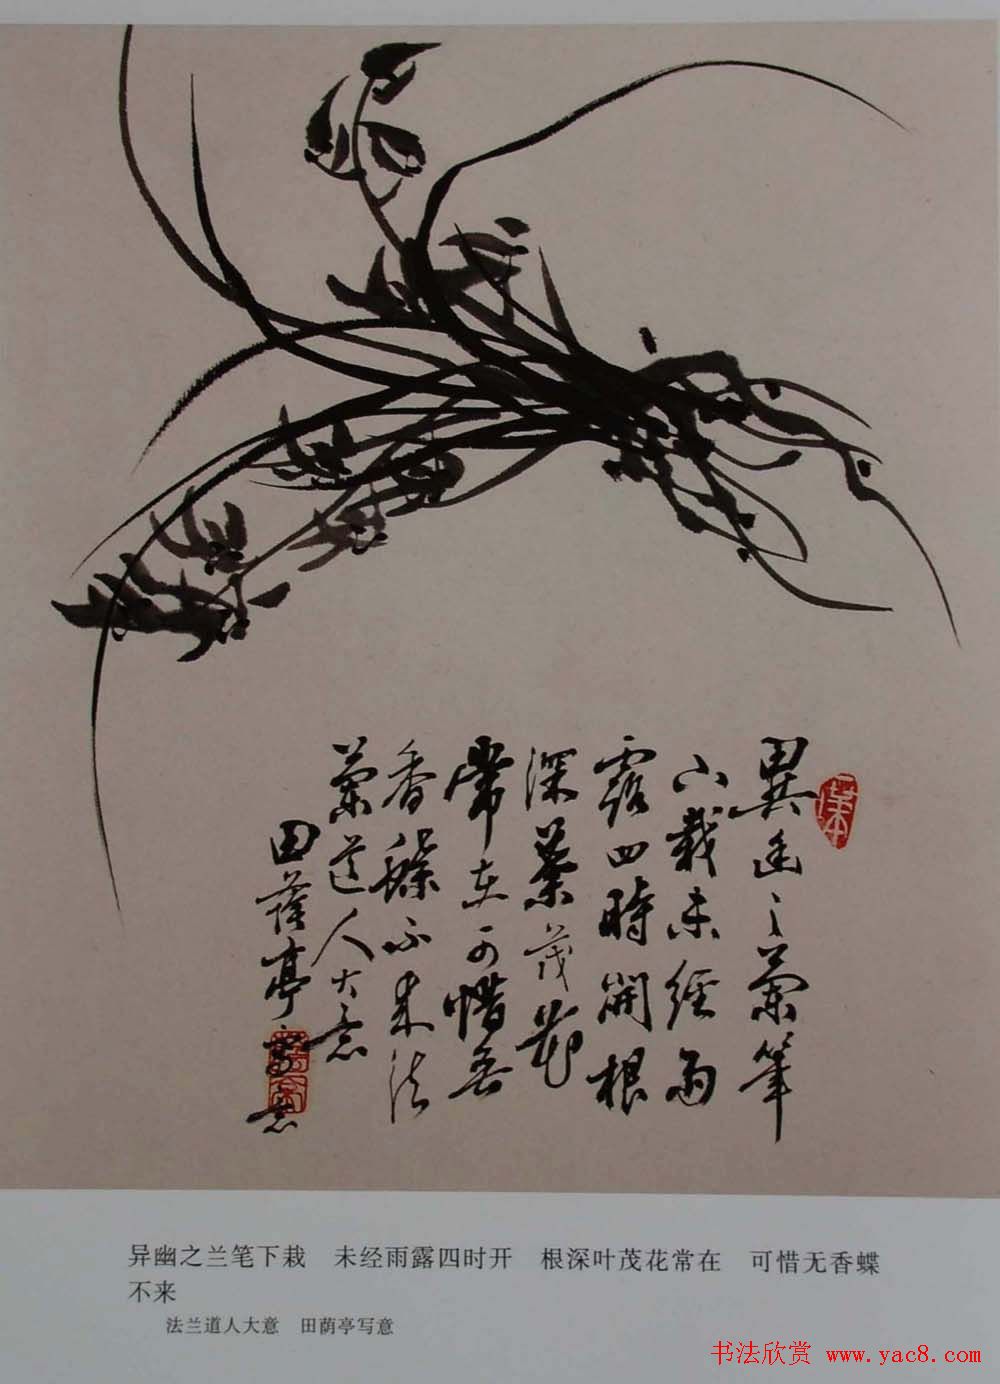 異幽之蘭筆
下栽未經雨
露四時開根
深葉茂花
常在可惜無
香蝶不来法
蘭道人大意
田蔭亭寫意
异幽之兰笔下栽　未经雨露四时开　根深叶茂花常在　可惜无香蝶
不来
法兰道人大意　田荫亭写意
书法欣赏 www.yac8.com